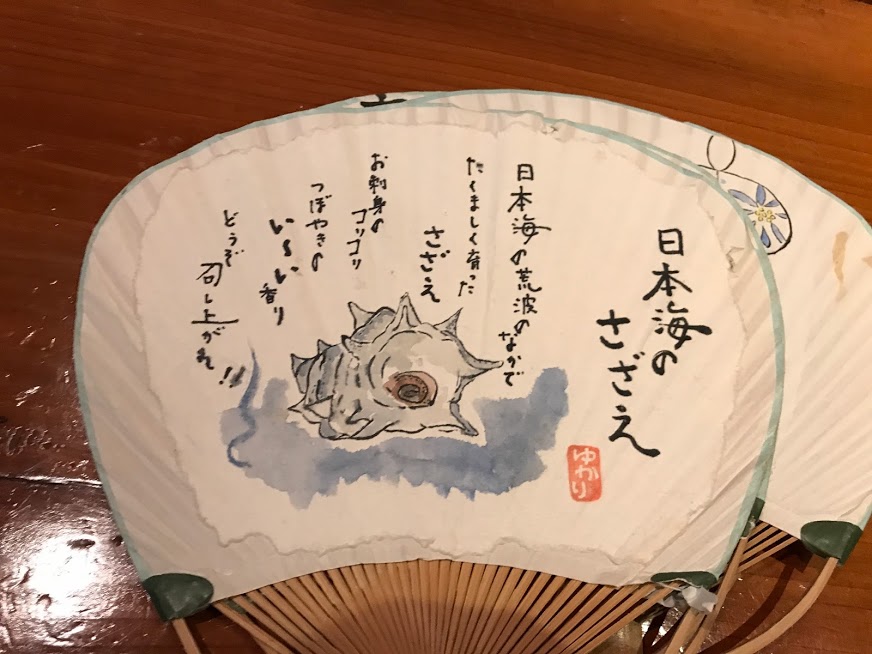 日本海の
さざえ
日本海の荒波のなかで
たくましく育った
さざえ
お刺身の
コリコリ
つぼやきの
い〜い香り
どうぞ
召し上がれ!!
ゆかり